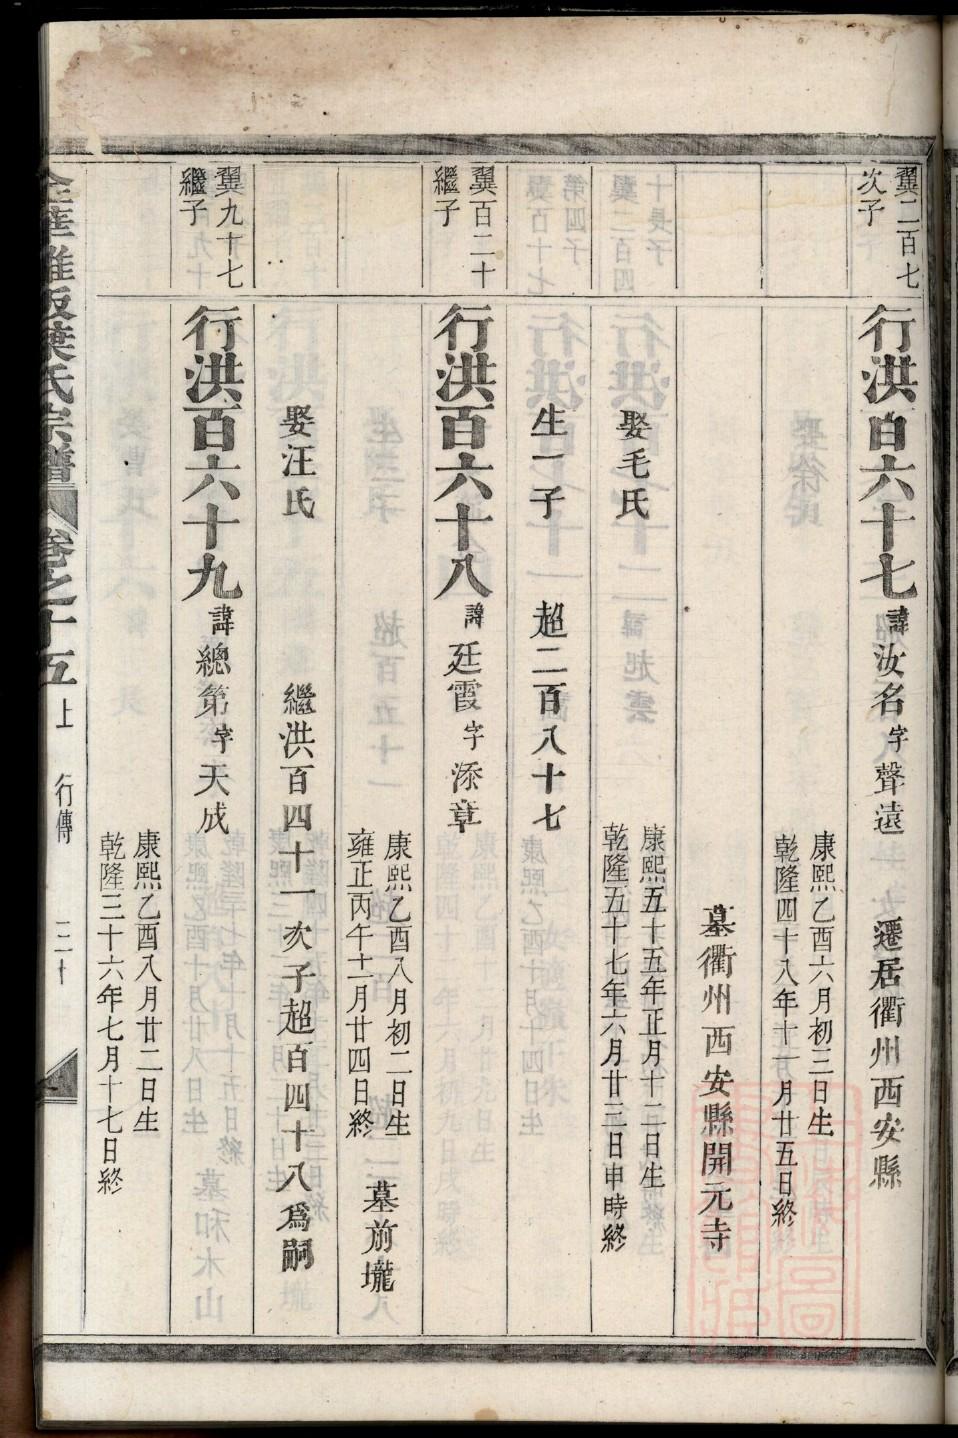 翼二百七
次子
行洪百六十七 諱汝名 字聲遠 遷居衢州西安縣
康熙乙酉六月初三日生
乾隆四十八年十一月廿五日終
墓衢州西安縣開元寺
娶毛氏
康熙五十五年正月十二日生
乾隆五十七年六月廿三日申時終
生一子 超二百八十七
翼百二十
繼子
行洪百六十八 諱廷霞 字添章
康熙乙酉八月初二日生
雍正丙午十一月廿四日終
墓前壠
娶汪氏 繼洪百四十一次子超百四十八爲嗣
翼九十七
繼子
行洪百六十九 諱總第 字天成
康熙乙酉八月廿二日生
乾隆三十六年七月十七日終
葉氏宗譜 卷之十五上 行傳 三十